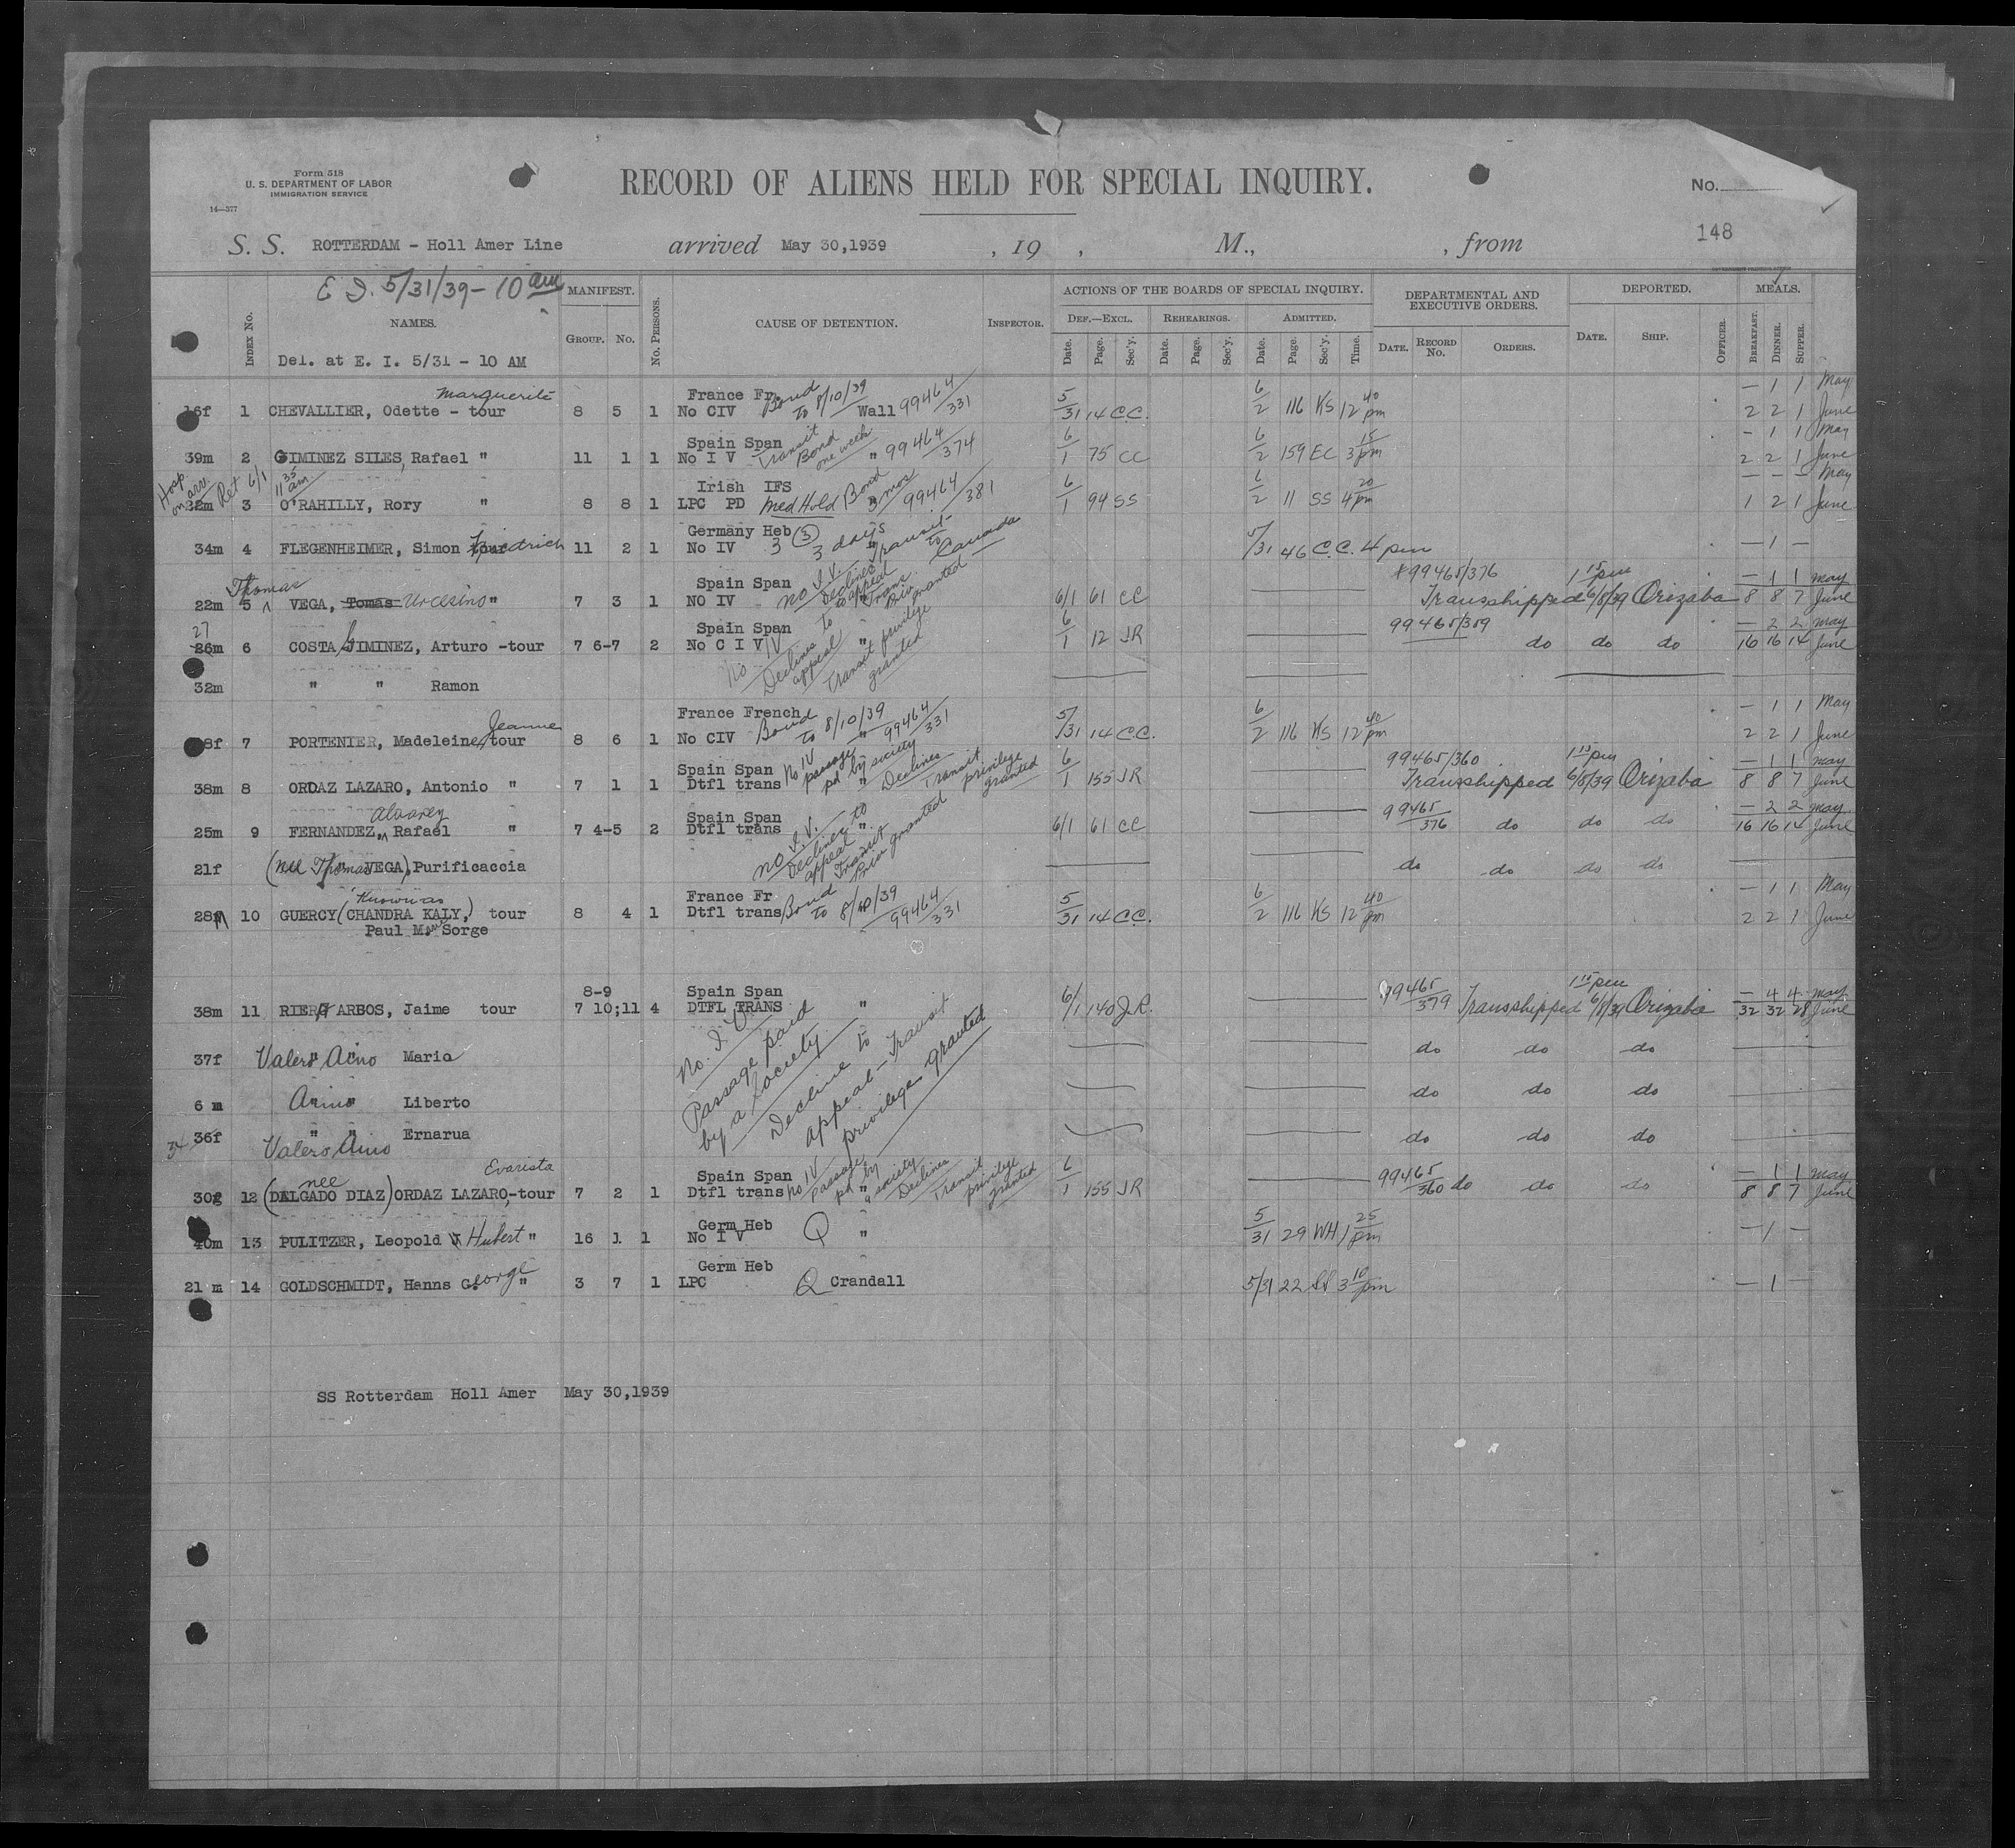 Form 518
U. S. DEPARTMENT OF LABOR
IMMIGRATION SERVICE
14—377
RECORD OF ALIENS HELD FOR SPECIAL INQUIRY.
No.
148
S. S. ROTTERDAM - Holl Amer Line arrived May 30,1939 , 19 , M., , from
E I. 5/31/39 - 10 am
NAMES.
Del. at E. I. 5/31 - 10 AM
INDEX No.
MANIFEST.
GROUP. No.
No. PERSONS.
CAUSE OF DETENTION.
INSPECTOR.
ACTIONS OF THE BOARDS OF SPECIAL INQUIRY.
DEF.—EXCL. REHEARINGS. ADMITTED.
Date. Page. Sec'y. Date. Page. Sec'y. Date. Page. Sec'y. Time.
DEPARTMENTAL AND EXECUTIVE ORDERS.
DATE. RECORD No. ORDERS.
DEPORTED.
DATE. SHIP. OFFICER.
MEALS.
BREAKFAST. DINNER. SUPPER.
Marguerite France Fr. Bond to 8/10/39 99464/331 — 1 1 May
16f 1 CHEVALLIER, Odette - tour 8 5 1 No CIV Wall 5/31 14 C.C. 6/2 116 KS 12 40 pm 2 2 1 June
Spain Span Transit Bond one week 99464/374 - 1 1 May
39m 2 GIMINEZ SILES, Rafael " 11 1 1 No I V " 6/1 75 CC 6/2 159 EC 3 15 pm 2 2 1 June
Hosp on arr. Ret 6/1 11 35 am Irish IFS Bond 3 mos 99464/381 — — — May
22m 3 O'RAHILLY, Rory " 8 8 1 LPC PD Med Hold 6/1 94 SS 6/2 11 SS 4 20 pm 1 2 1 June
Germany Heb 3 3 days Transit to Canada
34m 4 FLEGENHEIMER, Simon tour Friedrich 11 2 1 No IV 3 5/31 46 C.C. 4 pm — 1 —
Thomas Spain Span No I.V. Declines to appeal Trans. Priv granted 99465/376 1 15 pm — 1 1 May
22m 5 VEGA, Tomas Urcesino " 7 3 1 NO IV 6/1 61 CC Transshipped 6/8/39 Orizaba 8 8 7 June
27 Spain Span No IV Declines to appeal Transit privilege granted 99465/359 — 2 2 May
26m 6 COSTA GIMINEZ, Arturo -tour 7 6-7 2 No C I V " 6/1 12 JR do do do 16 16 14 June
32m " " Ramon
Jeanne France French Bond to 8/10/39 99464/331 — 1 1 May
f 7 PORTENIER, Madeleine, tour 8 6 1 No CIV " 5/31 14 C.C. 6/2 116 KS 12 40 pm 2 2 1 June
Spain Span No IV passage pd by society Declines Transit privilege granted 99465/360 1 15 pm — 1 1 May
38m 8 ORDAZ LAZARO, Antonio " 7 1 1 Dtfl trans " 6/1 155 JR Transshipped 6/8/39 Orizaba 8 8 7 June
Alvarez Spain Span No I.V. Declines to appeal Transit Priv granted 99465/376 — 2 2 May
25m 9 FERNANDEZ, Rafael " 7 4-5 2 Dtfl trans " 6/1 61 CC do do do 16 16 14 June
21f (nee Thomas VEGA), Purificaccia do do do do
Known as France Fr Bond to 8/10/39 99464/331 — 1 1 May
28m 10 GUERCY (CHANDRA KALY,) tour 8 4 1 Dtfl trans 5/31 14 C.C. 6/2 116 KS 12 40 pm 2 2 1 June
Paul M. Sorge
8-9 Spain Span 99465/379 1 15 pm — 4 4 May
38m 11 RIERA ARBOS, Jaime tour 7 10;11 4 DTFL TRANS " 6/1 140 J.R. Transshipped 6/8/39 Orizaba 32 32 28 June
No. I V. Passage paid by a Society Decline to appeal - Transit privilege granted
37f Valero Aino Maria do do do
6 m Aino Liberto do do do
34 36f " " Ernarua do do do
Valero Aino
nee Evarista Spain Span No IV Passage pd by a society Declines Transit privilege granted — 1 1 May
30f 12 (DALGADO DIAZ) ORDAZ LAZARO,-tour 7 2 1 Dtfl trans " 6/1 155 JR 99465/360 do do do 8 8 7 June
Germ Heb
40m 13 PULITZER, Leopold Hubert " 16 1 1 No I V Q " 5/31 29 WH 1 25 pm — 1 —
Germ Heb
21 m 14 GOLDSCHMIDT, Hanns George " 3 7 1 LPC Q Crandall 5/31 22 SS 3 10 pm — 1 —
SS Rotterdam Holl Amer May 30,1939